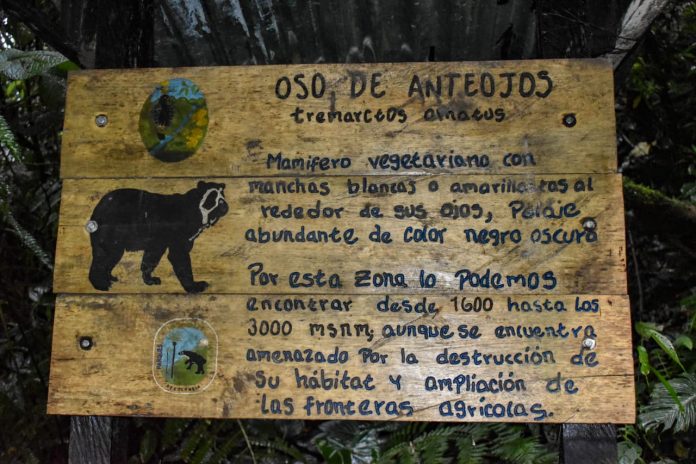 OSO DE ANTEOJOS
tremarctos ornatus
Mamifero vegetariano con
manchas blancas o amarillentas al
rededor de sus ojos, Pelaje
abundante de color negro oscuro
Por esta zona lo Podemos
encontrar desde 1600 hasta los
3000 msnm, aunque se encuentra
amenazado Por la destrucción de
su hábitat y ampliación de
las fronteras agrícolas.